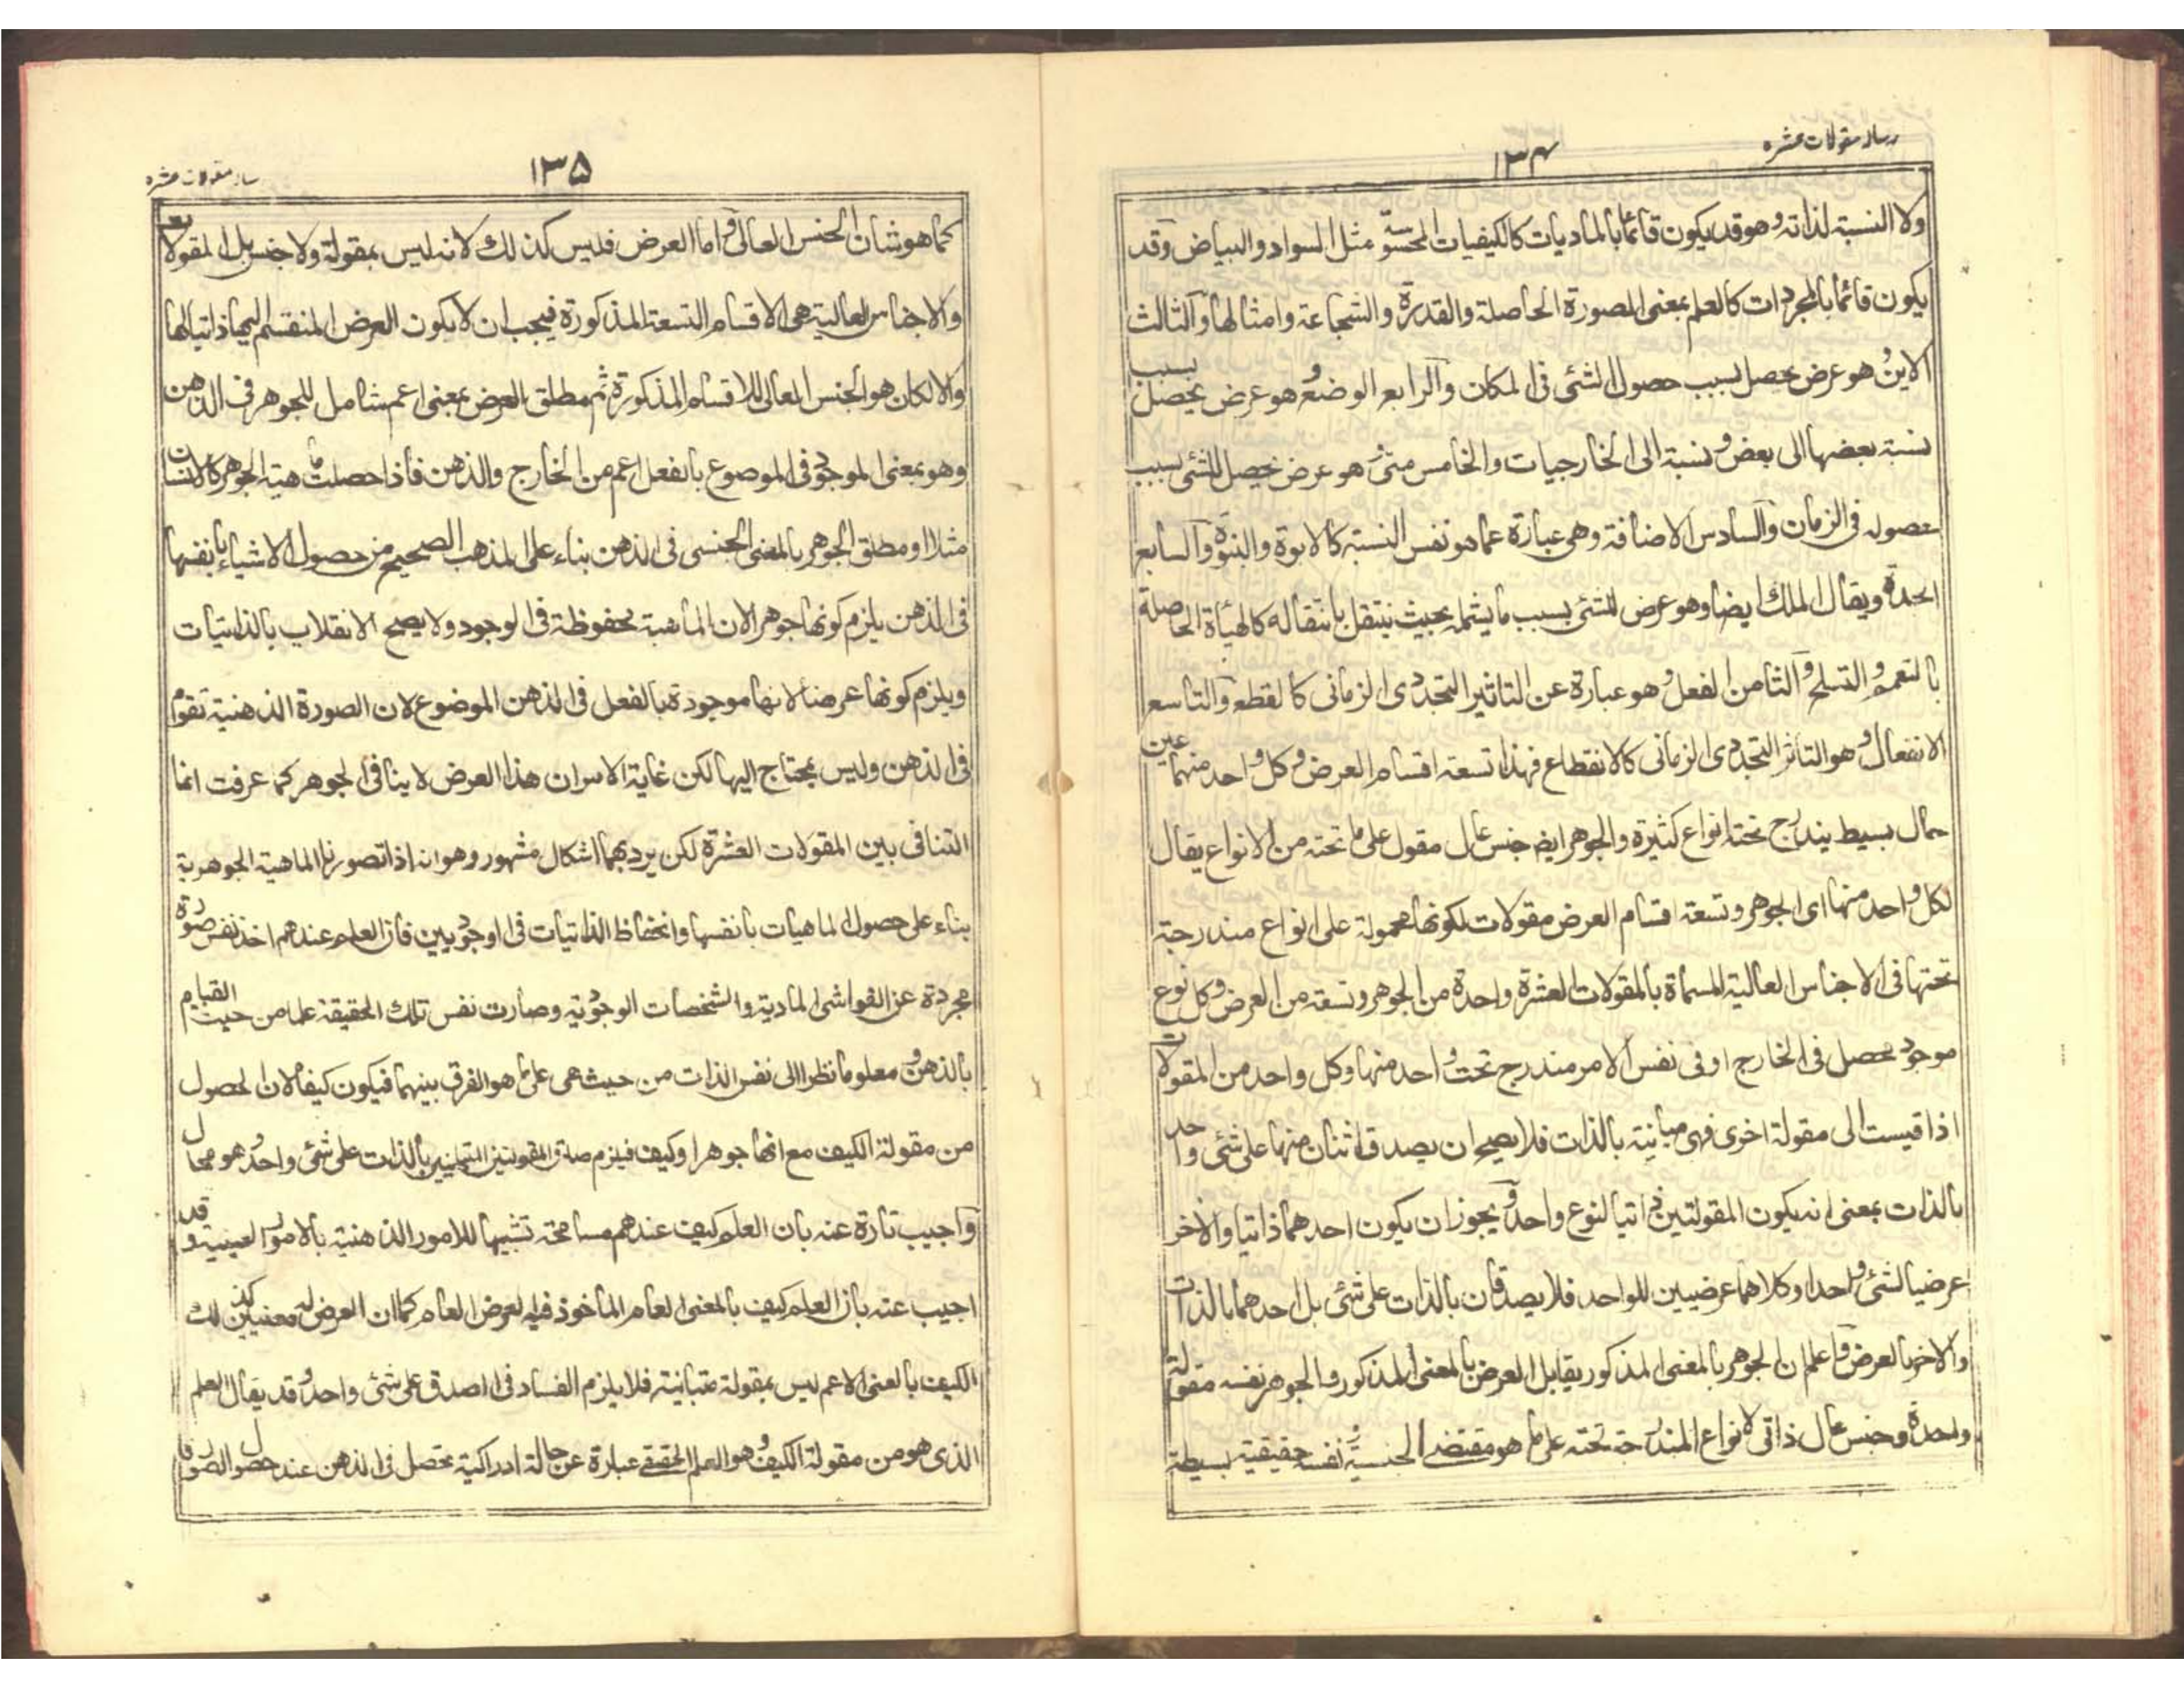 رساله مقولات عشره
١٣۴
ولا النسبة لذاته وهو قد يكون قائما بالماديات كالكيفيات المحسوسة مثل السواد والبياض وقد
يكون قائما بالمجردات كالعلم بمعنى الصورة الحاصلة والقدرة والشجاعة وامثالها والثالث
الاين وهو عرض يحصل بسبب حصول الشئ فى المكان والرابع الوضع وهو عرض يحصل بسبب
نسبة بعضها الى بعض ونسبة الى الخارجيات والخامس متى وهو عرض يحصل للشئ بسبب
حصوله فى الزمان والسادس الاضافة وهى عبارة عما هو نفس النسبة كالابوة والبنوة والسابع
الجدة ويقال الملك ايضا وهو عرض للشئ بسبب ما يشمله بحيث ينتقل بانتقاله كالهيأة الحاصلة
بالتعمم والتسلح والثامن الفعل وهو عبارة عن التاثير التجددى الزمانى كالقطع والتاسع
الانفعال وهو التأثر التجددى الزمانى كالانقطاع فهذا تسعة اقسام العرض وكل واحد منهما عين
حمال بسيط يندرج تحته انواع كثيرة والجوهر ايضا جنس عال مقول على ما تحته من الانواع يقال
لكل واحد منها اى الجوهر وتسعة اقسام العرض مقولات لكونها محمولة على انواع مندرجة
تحتها فى الاجناس العالية المسماة بالمقولات العشرة واحدة من الجوهر وتسعة من العرض وكل نوع
موجود محصل فى الخارج او فى نفس الامر مندرج تحت واحد منها وكل واحد من المقولات
اذا قيست الى مقولة اخرى فهى مباينة بالذات فلا يصح ان يصدق اثنان منها على شئ واحد
بالذات بمعنى انه يكون المقولتين ذاتيا لنوع واحد ويجوز ان يكون احدهما ذاتيا والاخر
عرضيا لشئ واحد او كلاهما عرضيين للواحد فلا يصدقان بالذات على شئ بل احدهما بالذات
والاخر بالعرض واعلم ان الجوهر بالمعنى المذكور يقابل العرض بالمعنى المذكور والجوهر نفسه مقولة
واحدة وجنس عال ذاتى لانواع المندرجة تحته على ما هو مقتضى الجنسية ونفسه حقيقية بسيطة
ساله مقولات عشره
١٣۵
كما هو شان الجنس العالى واما العرض فليس كذلك لانه ليس بمقولة ولا جنس بل المقولات
والاجناس العالية هى الاقسام التسعة المذكورة فيجب ان لا يكون العرض المنقسم اليها ذاتيا لها
والا لكان هو الجنس العالى للاقسام المذكورة ثم مطلق العرض بمعنى اعم شامل للجوهر فى الذهن
وهو بمعنى الموجود فى الموضوع بالفعل اعم من الخارج والذهن فاذا حصلت ماهية الجوهر كالانسان
مثلا او مطلق الجوهر بالمعنى الجنسى فى الذهن بناء على المذهب الصحيح من حصول الاشياء بانفسها
فى الذهن يلزم كونها جوهرا لان الماهية محفوظة فى الوجود ولا يصح الانقلاب بالذاتيات
ويلزم كونها عرضا لانها موجودة بالفعل فى الذهن الموضوع لان الصورة الذهنية تقوم
فى الذهن وليس بمحتاج اليها لكن غاية الامر ان هذا العرض لا ينافى الجوهر كما عرفت انما
التنافى بين المقولات العشرة لكن يرد بهما اشكال مشهور وهو انه اذا تصورنا الماهية الجوهرية
بناء على حصول الماهيات بانفسها وانحفاظ الذاتيات فى الوجودين فان العلم عندهم اخذ نفس صورة
مجردة عن الغواشى المادية والشخصات الوجودية وصارت نفس تلك الحقيقة علما من حيث القيام
بالذهن ومعلوما نظرا الى نفس الذات من حيث هى على ما هو الفرق بينهما فيكون كيفا لان الحصول
من مقولة الكيف مع انها جوهرا وكيف فيلزم صدق المقولتين المتباينين بالذات على شئ واحد وهو محال
واجيب تارة عنه بان العلم كيف عندهم مسامحة تشبيها للامور الذهنية بالامور العينية وقد
اجيب عنه بان العلم كيف بالمعنى العام الماخوذ فيه العرض العام كما ان العرض له معنيين كذلك
الكيف بالمعنى الاعم ليس بمقولة متباينة فلا يلزم الفساد فى اصدق على شئ واحد وقد يقال العلم
الذى هو من مقولة الكيف وهو العلم الحقيقى عبارة عن حالة ادراكية تحصل فى الذهن عند حصول الصورة